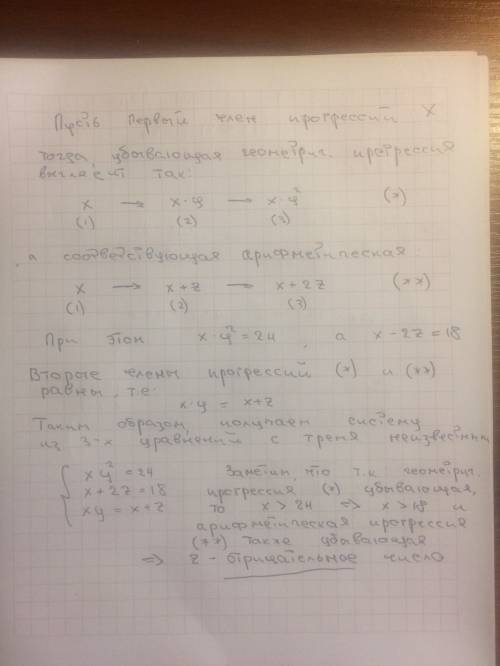 Пусть первый член прогрессий X
тогда, убывающая геометрич. прогрессия
выглядит так:
x → x·y → x·y² (*)
(1) (2) (3)
а соответствующая арифметическая:
x → x+z → x+2z (**)
(1) (2) (3)
При этом x·y²=24, а x-2z=18
Вторые члены прогрессий (*) и (**)
равны, т.е.
x·y = x+z
Таким образом, получаем систему
из 3-х уравнений с тремя неизвестными
{ xy²=24
x+2z=18
xy=x+z
Заметим, что т.к. геометрич.
прогрессия (*) убывающая,
то x>24 ⇒ x>18 и
арифметическая прогрессия
(**) также убывающая
⇒ z - отрицательное число